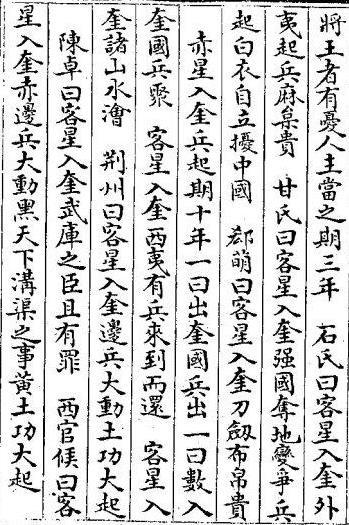 將王者有憂人主當之期三年　石氏曰客星入奎外
夷起兵麻枲貴　甘氏曰客星入奎强國奪地變爭兵
起白衣自立擾中國　郄萌曰客星入奎刀劔布帛貴
赤星入奎兵起期十年一曰出奎國兵出一曰數入
奎國兵聚　客星入奎西夷有兵來到而還　客星入
奎諸山水澮　荆州曰客星入奎邊兵大動土功大起
陳卓曰客星入奎武庫之臣且有罪　西官候曰客
星入奎赤邊兵大動黑天下溝渠之事黄土功大起